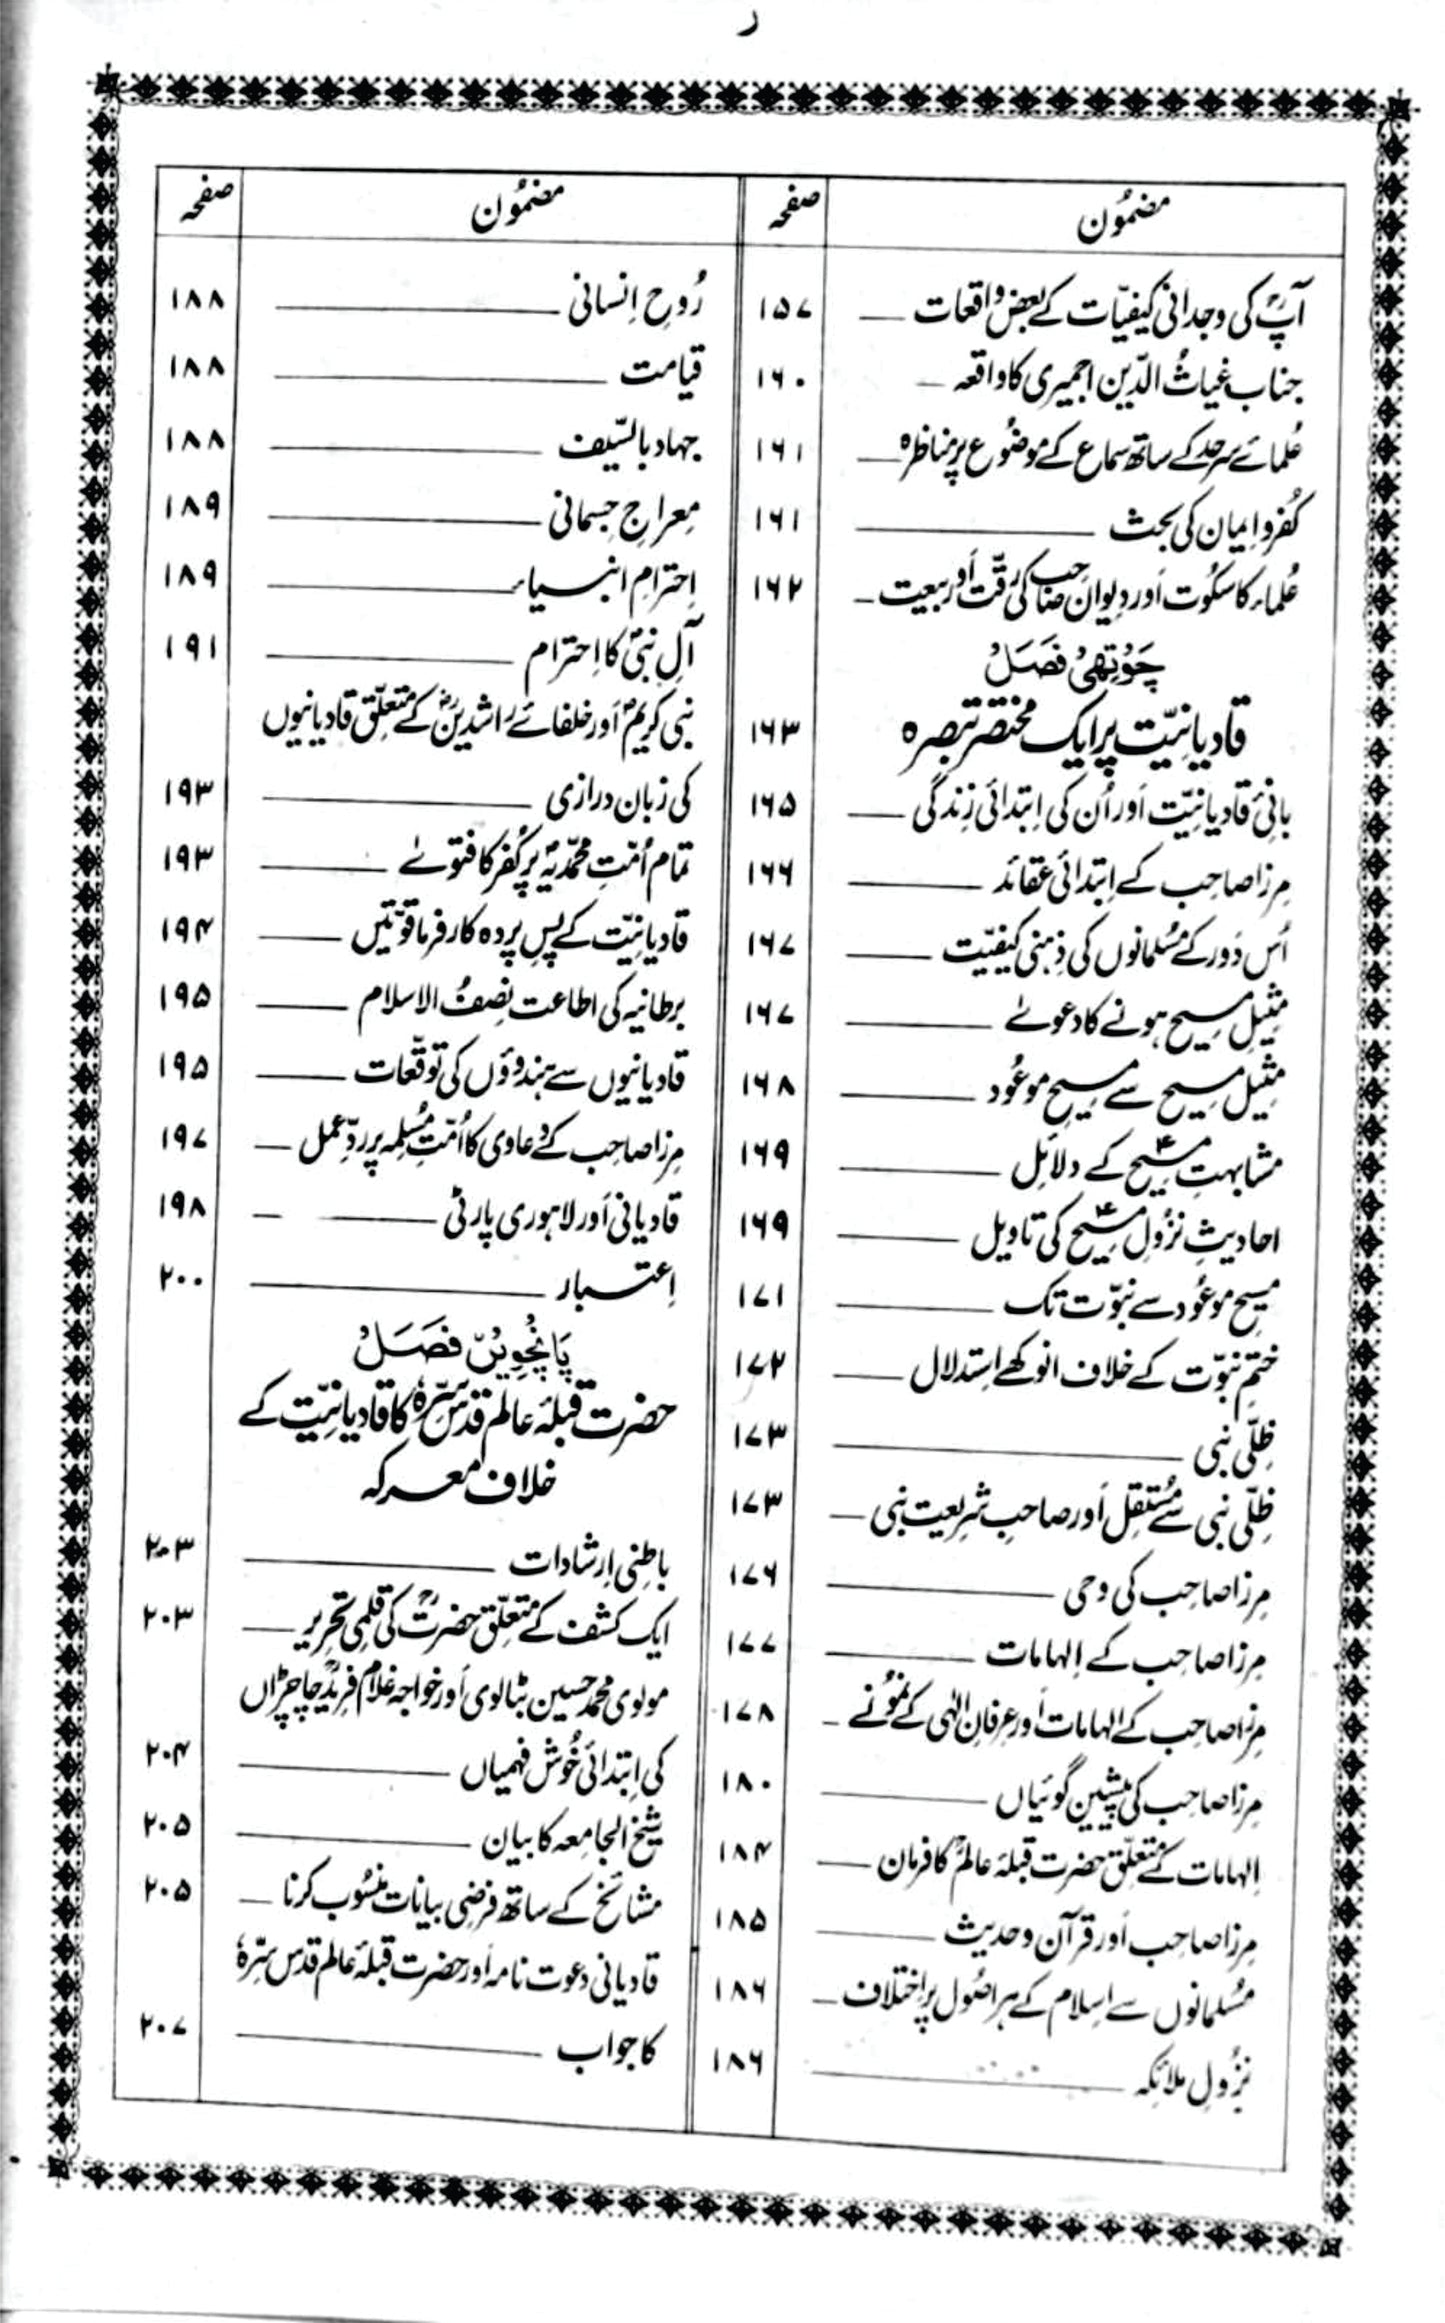 ر
مضمُون صفحہ
آپؒ کی وجدانی کیفیّات کے بعض واقعات ۱۵۷
جناب غیاثُ الدّین اجمیری کا واقعہ ۱۶۰
عُلمائے سرحد کے ساتھ سماع کے موضُوع پر مناظرہ ۱۶۱
کُفر و اِیمان کی بحث ۱۶۱
عُلماء کا سکُوت اَور دِیوان صاحب کی رقّت اَور بیعت ۱۶۲
چَوتھی فَصَل
قادیانِیّت پر ایک مختصر تبصرہ ۱۶۳
بانیٔ قادیانِیّت اَور اُن کی اِبتدائی زِندگی ۱۶۵
مِرزا صاحِب کے اِبتدائی عقائد ۱۶۶
اُس دَور کے مُسلمانوں کی ذِہنی کیفیّت ۱۶۷
مثِیلِ مسِیح ہونے کا دعوےٰ ۱۶۷
مثِیلِ مسِیح سے مسِیحِ موعُود ۱۶۸
مشابہتِ مسِیحؑ کے دلائل ۱۶۹
احادیثِ نزُولِ مسِیحؑ کی تاویل ۱۶۹
مسِیحِ موعُود سے نبوّت تک ۱۷۱
ختمِ نبوّت کے خلاف انوکھے اِستدلال ۱۷۲
ظِلّی نبی ۱۷۳
ظِلّی نبی سے مُستقِل اَور صاحبِ شرِیعت نبی ۱۷۳
مِرزا صاحِب کی وحی ۱۷۶
مِرزا صاحِب کے اِلہامات ۱۷۷
مِرزا صاحِب کے اِلہامات اَور عِرفانِ اِلٰہی کے نمُونے ۱۷۸
مِرزا صاحِب کی پیشِین گوئیاں ۱۸۰
اِلہامات کے متعلّق حضرت قبلۂ عالمؒ کا فرمان ۱۸۴
مِرزا صاحِب اَور قرآن و حدیث ۱۸۵
مُسلمانوں سے اِسلام کے ہر اصُول پر اِختلاف ۱۸۶
نزُولِ ملائکہ ۱۸۶
مضمُون صفحہ
رُوحِ اِنسانی ۱۸۸
قیامت ۱۸۸
جہاد بالسّیف ۱۸۸
مِعراجِ جِسمانی ۱۸۹
اِحترامِ انبیاء ۱۸۹
آلِ نبیؐ کا اِحترام ۱۹۱
نبی کریمؐ اَور خلفائے راشدینؓ کے متعلّق قادیانیوں
کی زبان درازی ۱۹۳
تمام اُمّتِ محمّدیہؐ پر کُفر کا فتوےٰ ۱۹۳
قادیانِیّت کے پسِ پردہ کارفرما قوّتیں ۱۹۴
برطانیہ کی اطاعت نِصفُ الاسلام ۱۹۵
قادیانیوں سے ہندوؤں کی توقّعات ۱۹۵
مِرزا صاحِب کے دعاوی کا اُمّتِ مُسلِمہ پر ردِّ عمل ۱۹۷
قادیانی اَور لاہوری پارٹی ۱۹۸
اِعتبار ۲۰۰
پَانچویں فَصَل
حضرت قبلۂ عالم قدس سرّہٗ کا قادیانِیّت کے
خلاف معرکہ
باطِنی اِرشادات ۲۰۳
ایک کشف کے متعلّق حضرتؒ کی قلمی تحریر ۲۰۳
مولوی محمد حسین بٹالوی اَور خواجہ غلام فریدؒ چاچڑاں
کی اِبتدائی خُوش فہمیاں ۲۰۴
شیخُ الجامِعہ کا بیان ۲۰۵
مشائخ کے ساتھ فرضی بیانات منسُوب کرنا ۲۰۵
قادیانی دعوت نامہ اَور حضرت قبلۂ عالم قدس سرّہٗ
کا جواب ۲۰۷